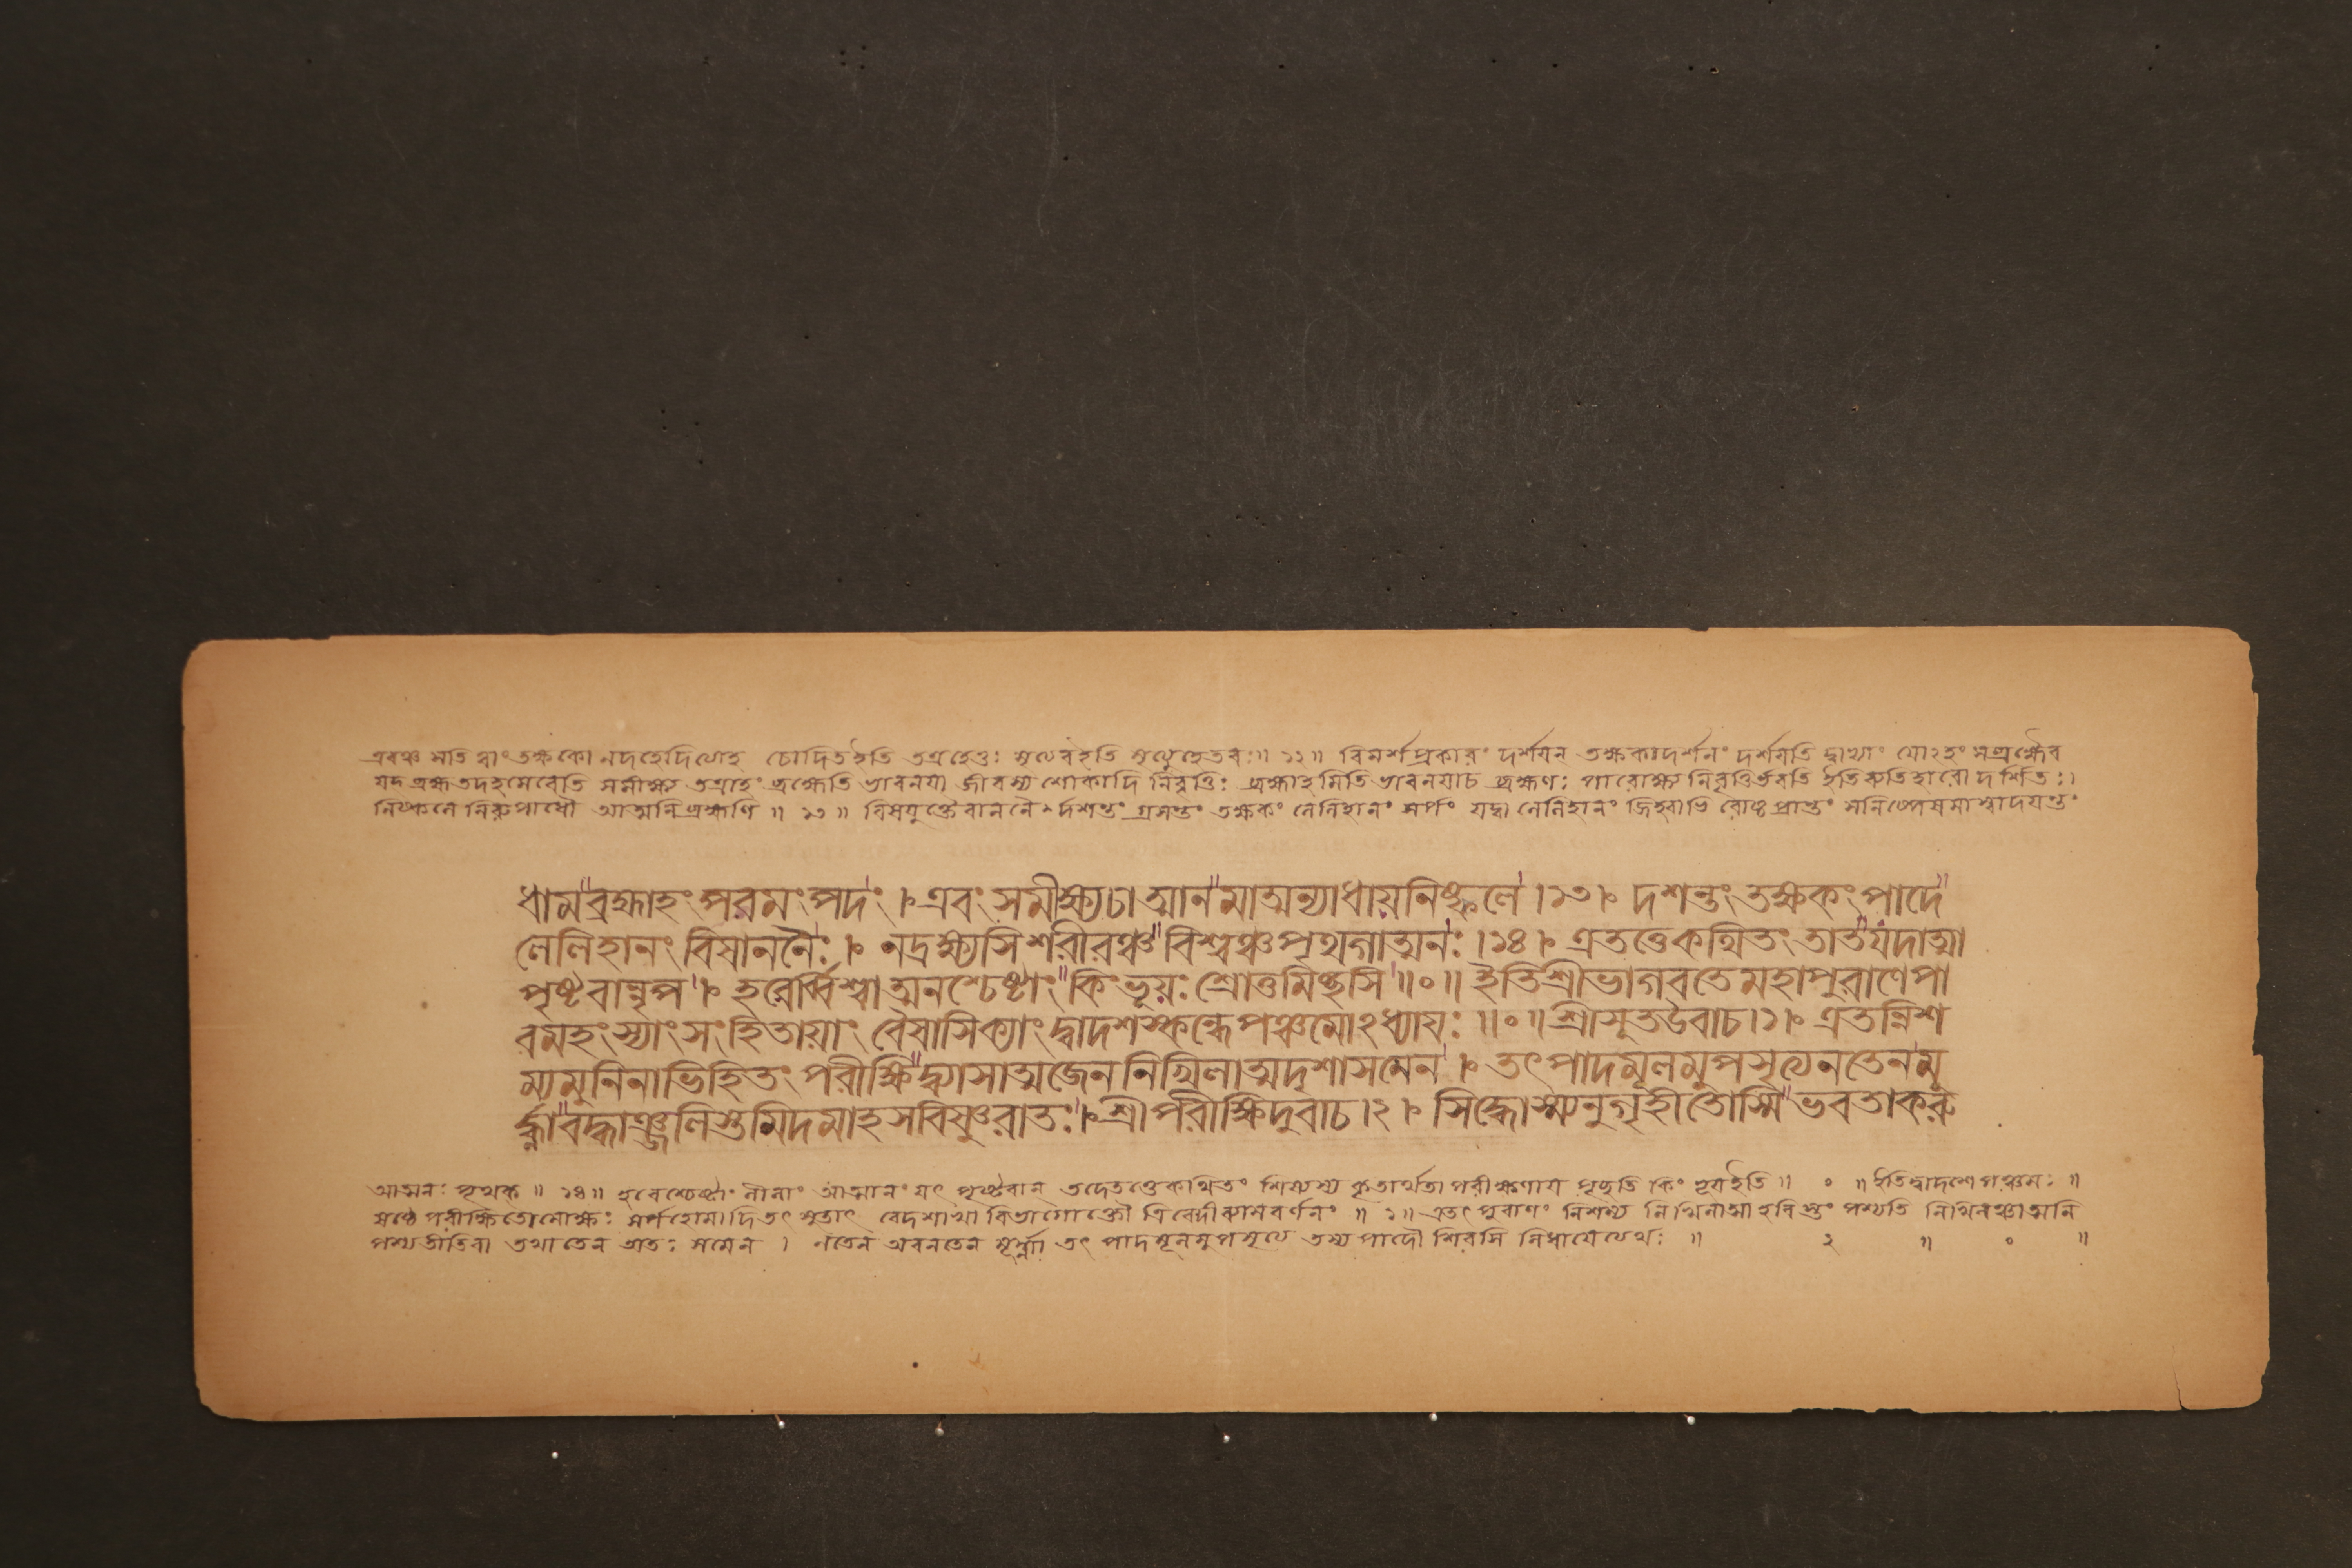 এবঞ্চ সতি ত্বাং তক্ষকো নদহেদিত্যাহ চোদিতইতি তত্রহেতুঃ মৃত্যবইতি মৃত্যুহেতবঃ॥ ১২॥ বিমর্শপ্রকারং দর্শয়ন্ তক্ষকাদর্শনং দর্শয়তি দ্বাভ্যাং যোঽহং সব্রহ্মৈব
যদ্ ব্রহ্ম তদহমেবেতি সমীক্ষ্য তত্রাহং ব্রহ্মেতি ভাবনয়া জীবস্য শোকাদি নিবৃত্তিঃ ব্রহ্মাহমিতি ভাবনয়াচ ব্রহ্মণঃ পারোক্ষ্য নিবৃত্তির্ভবতি ইতি ব্যতিহারো দর্শিতঃ।
নিষ্কলে নিরুপাধৌ আত্মনিব্রহ্মণি ॥ ১৩ ॥ বিষযুক্তৈরাননৈর্দশন্তং গ্রসন্তং তক্ষকং লেলিহানং সর্পং যদ্বা লেলিহানং জিহ্বাভি রোষ্ঠপ্রান্তং
ধাম ব্রহ্মাহং পরমং পদং । এবং সমীক্ষ্য চাত্মানমাত্মন্যাধায় নিষ্কলে ।১৩। দশন্তং তক্ষকং পাদে
লেলিহানং বিষাননৈঃ । নদ্রক্ষ্যসি শরীরঞ্চ বিশ্বঞ্চ পৃথগাত্মনঃ ।১৪। এতত্তে কথিতং তাত যদাত্মা
পৃষ্টবান্নৃপ । হরের্ব্বিশ্বাত্মনশ্চেষ্টাং কিং ভূয়ঃ শ্রোতুমিচ্ছসি ॥০॥ ইতি শ্রীভাগবতে মহাপুরাণে পা
রমহংস্যাং সংহিতায়াং বৈয়াসিক্যাং দ্বাদশস্কন্ধে পঞ্চমোঽধ্যায়ঃ ॥০॥ শ্রীসূতউবাচ।১। এতন্নিশ
ম্যমুনিনাভিহিতং পরীক্ষিদ্ব্যাসাত্মজেন নিখিলাত্মদৃশাসমেন । তৎপাদমূলমুপসৃত্য নতেন মূ
র্দ্ধ্না বদ্ধাঞ্জলিস্তমিদমাহ সবিষ্ণুরাতঃ। শ্রীপরীক্ষিদুবাচ ।২। সিদ্ধোস্ম্যনুগৃহীতোস্মি ভবতা করু
আত্মনঃ পৃথক্ ॥ ১৪॥ হরেশ্চেষ্টাং লীলাং আত্মানং যৎ পৃষ্টবান্ তদেতত্তেকথিতং শিষ্যস্য কৃতার্থতা পরীক্ষণায় পৃচ্ছতি কিং ভূয়ইতি॥ ০ ॥ইতিদ্বাদশে পঞ্চমঃ ॥
ষষ্ঠে পরীক্ষিতোমোক্ষঃ সর্পহোমাদিতৎ সুতাৎ বেদশাখা বিভাগোক্তৌ ত্রিবেদীব্যাসবর্ণনং ॥ ১॥ এতৎ পুরাণং নিশম্য নিখিলাত্মাহরিস্তং পশ্যতি নিখিলঞ্চাত্মনি
পশ্যতীতিবা তথা তেন অতঃ সমেন । নতেন অবনতেন মূর্দ্ধ্না তৎ পাদমূলমুপসৃত্য তস্য পাদৌ শিরসি নিধায়েত্যর্থঃ ॥ ২ ॥ ০ ॥